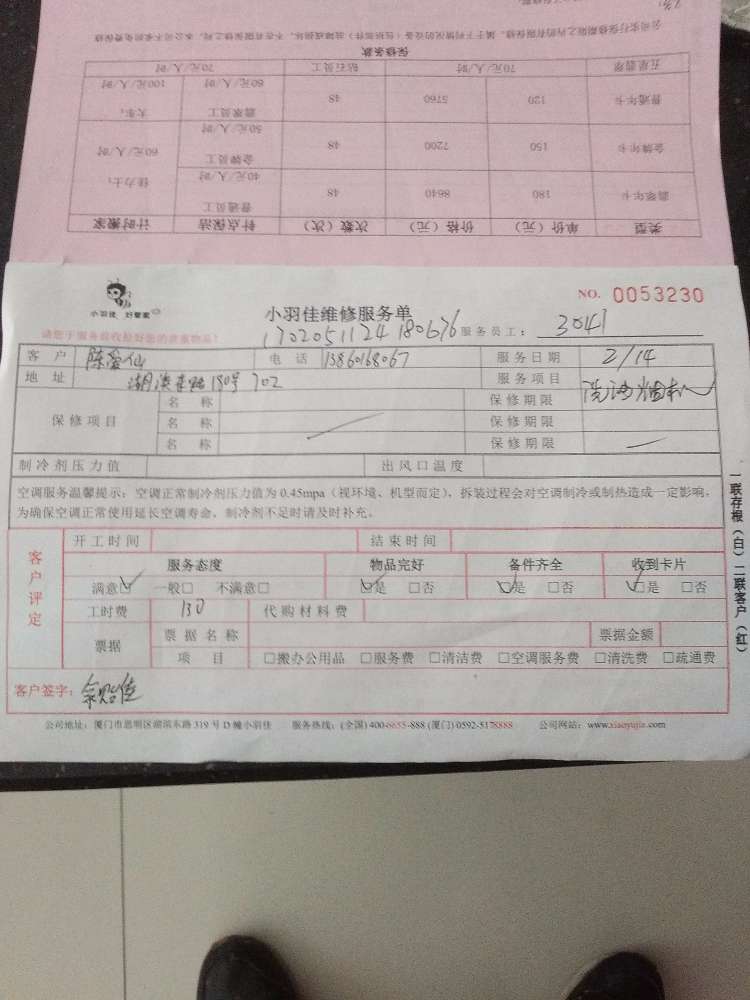 公司实行保修期限之内的有限保修，属于下列情况的设备（包括部件）故障或损坏，不在有限保修之列，本公司将实行免费保修
保修条款
五星翡翠 70元/人/时 钻石员工 70元/人/时
普通年卡 120 5760 48 翡翠员工 60元/人/时 大车： 100元/人/时
金牌年卡 150 7200 48 金牌员工 50元/人/时
翡翠年卡 180 8640 48 普通员工 40元/人/时 佳力士： 60元/人/时
类型 单价（元） 价格（元） 次数（次） 钟点保洁 计时搬家
小羽佳 好管家
NO. 0053230
小羽佳维修服务单
请您于服务前收拾好您的贵重物品！
1702051124180676 服务员工： 3041
客户 陈爱仙 电话 13860168067 服务日期 2/14
地址 湖滨东路180号702 服务项目 洗油烟机
保修项目 名称 保修期限
名称 保修期限
名称 保修期限
制冷剂压力值 出风口温度
空调服务温馨提示：空调正常制冷剂压力值为0.45mpa（视环境、机型而定），拆装过程会对空调制冷或制热造成一定影响，
为确保空调正常使用延长空调寿命，制冷剂不足时请及时补充。
客户评定
开工时间 结束时间
服务态度 物品完好 备件齐全 收到卡片
满意☑ 一般□ 不满意□ ☑是 □否 ☑是 □否 ☑是 □否
工时费 130 代购材料费
票据 票据名称 票据金额
项目 □搬办公用品 □服务费 □清洁费 □空调服务费 □清洗费 □疏通费
客户签字：
公司地址：厦门市思明区湖滨东路319号D幢小羽佳 服务热线：(全国) 400-6655-888 (厦门) 0592-5178888 公司网站：www.xiaoyujia.com
一联存根（白）二联客户（红）